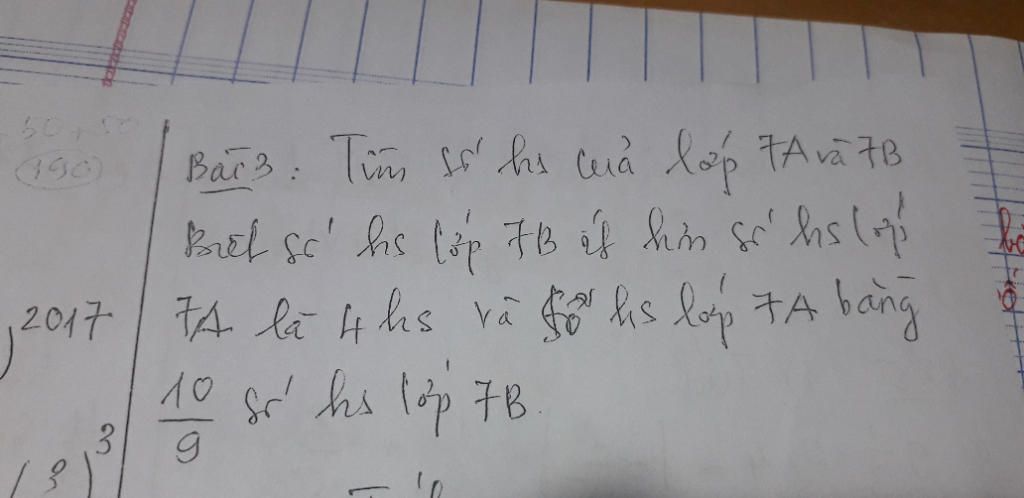 50 + 50
190
Bài 3 : Tìm số hs của lớp 7A và 7B
Biết số hs lớp 7B ít hơn số hs lớp
7A là 4 hs và số hs lớp 7A bằng
10/9 số hs lớp 7B.
, 2017
)3